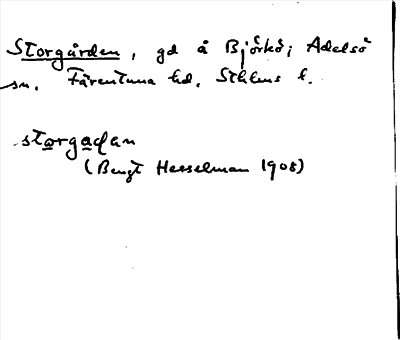 Storgården, gd å Björkö; Adelsö
sn. Färentuna hd. Sthlms l.
storgadan
(Bengt Hesselman 1908)